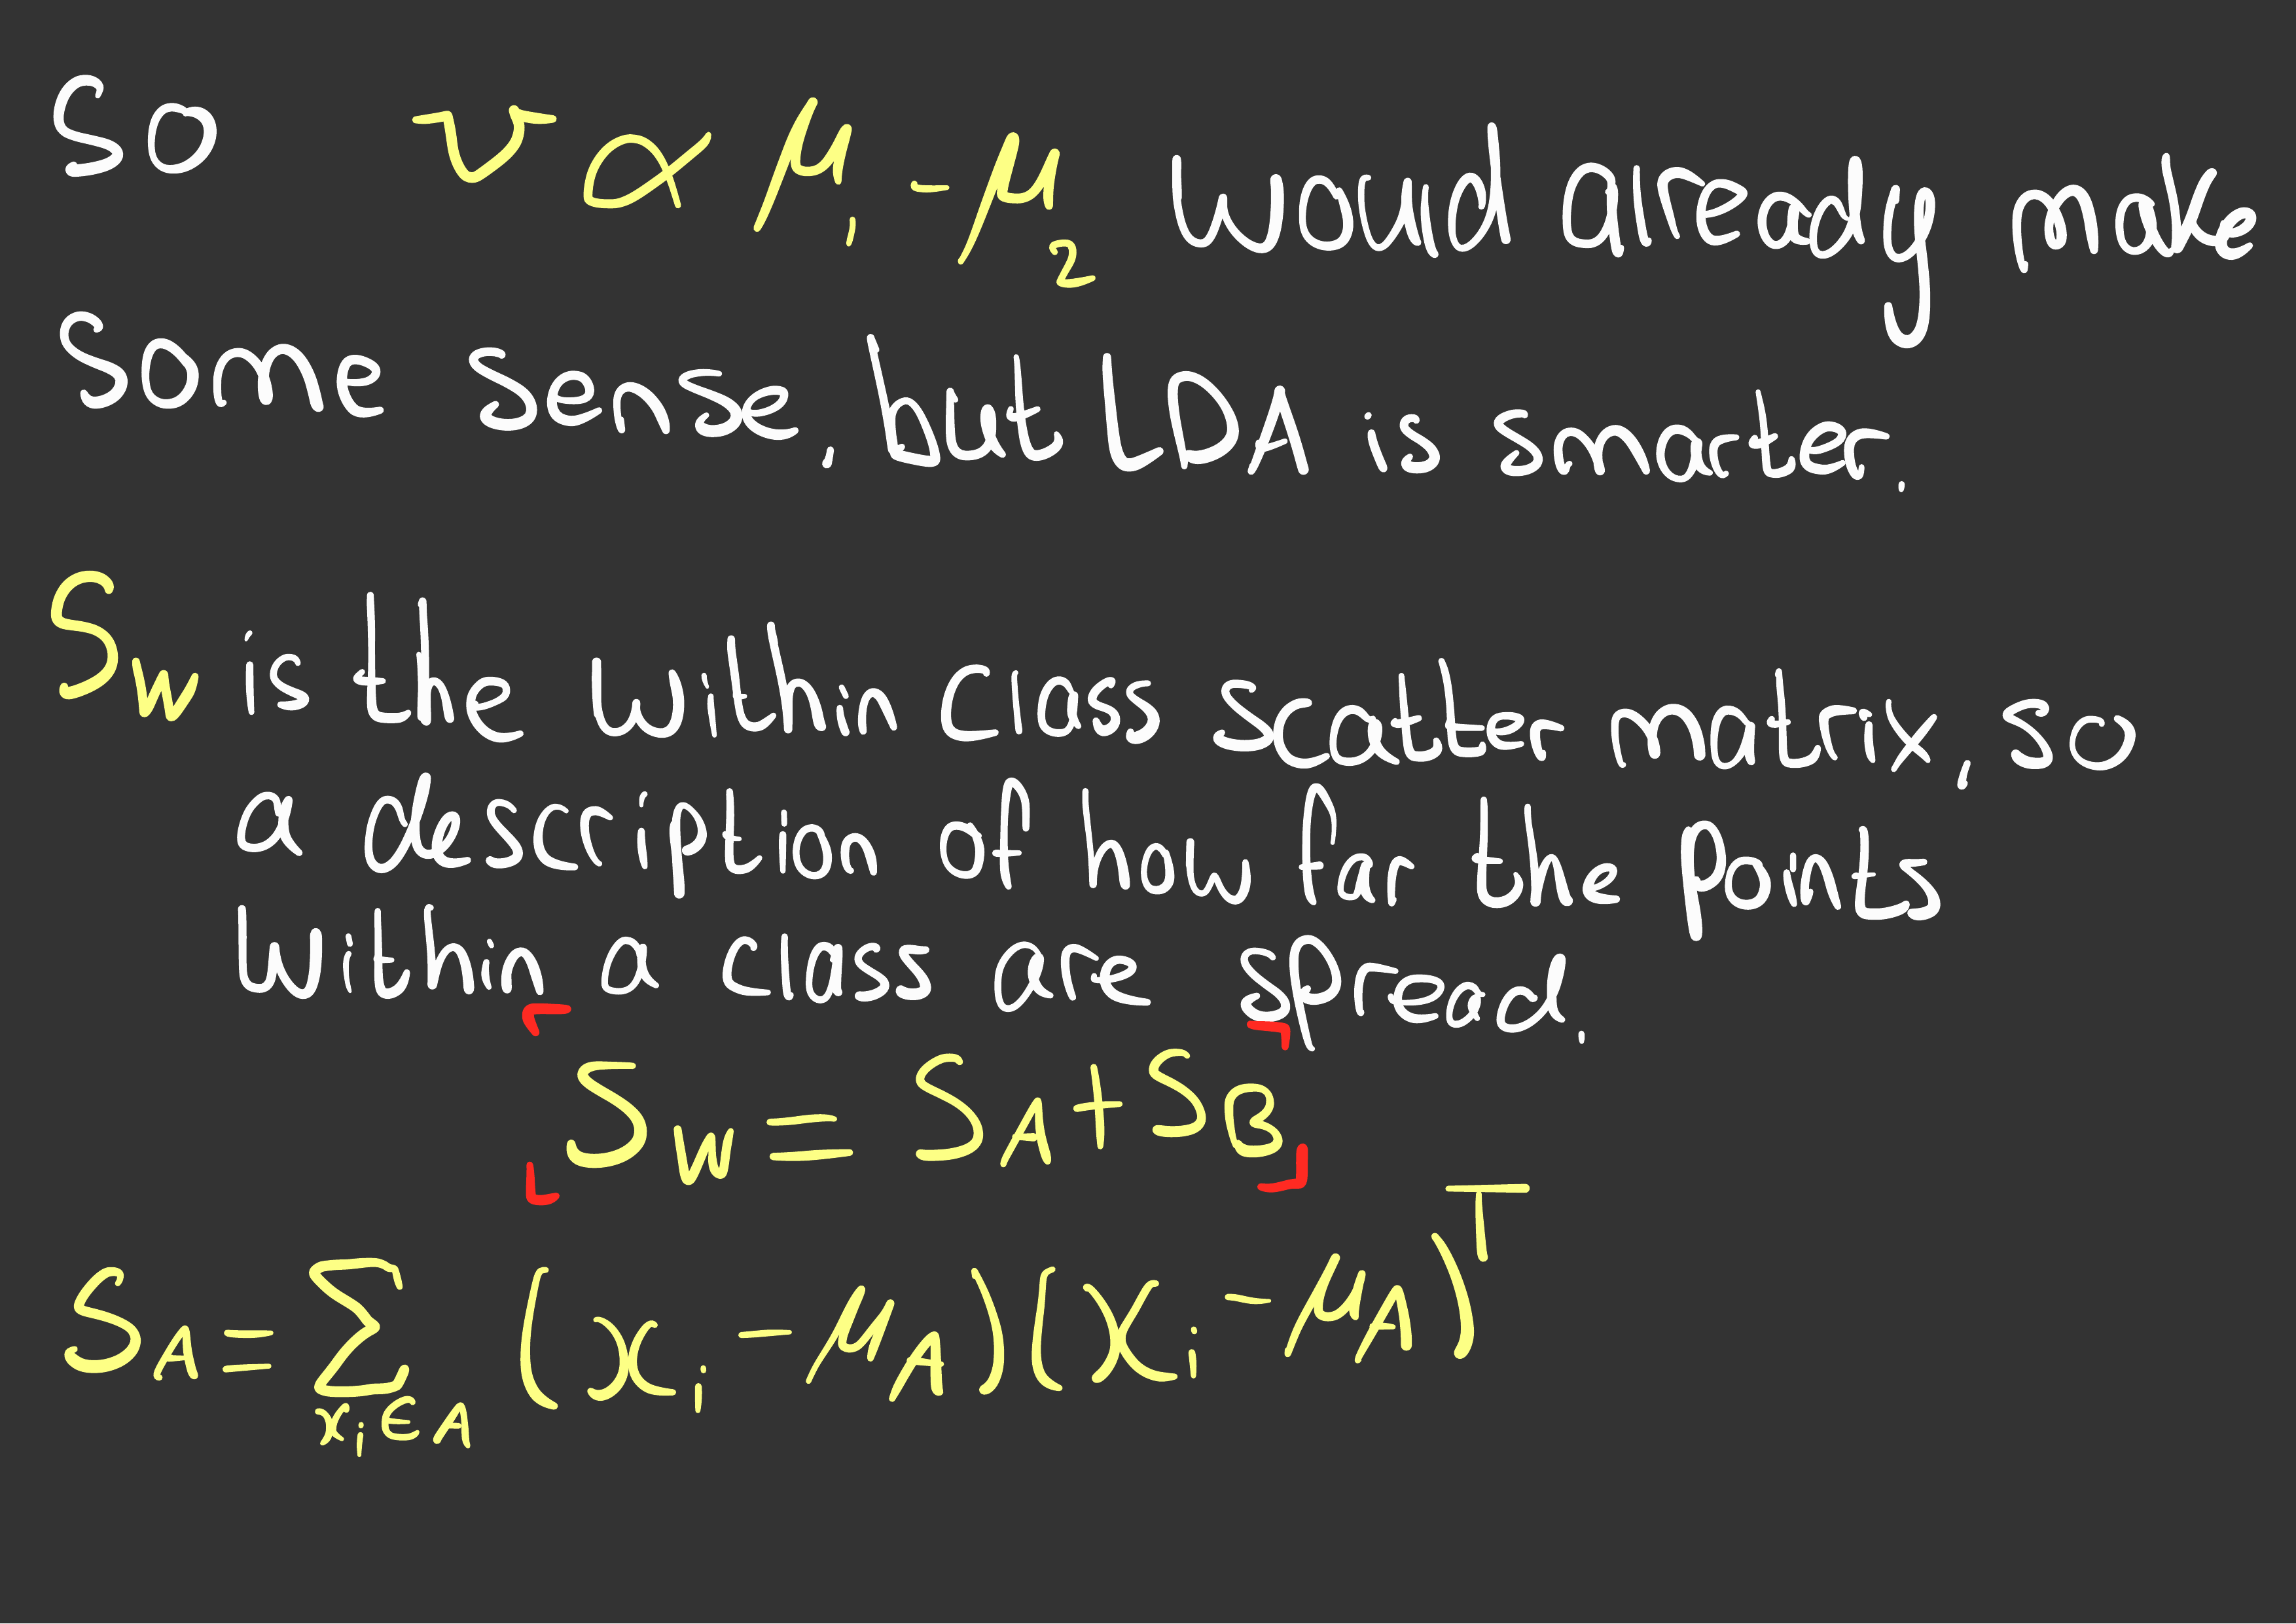 So v ∝ μ₁ - μ₂ would already make
Some sense, but LDA is smarter.
S_W is the within class scatter matrix, so
a description of how far the points
within a class are spread.
S_W = S_A + S_B
S_A = ∑_{x_i ∈ A} (x_i - μ_A)(x_i - μ_A)^T